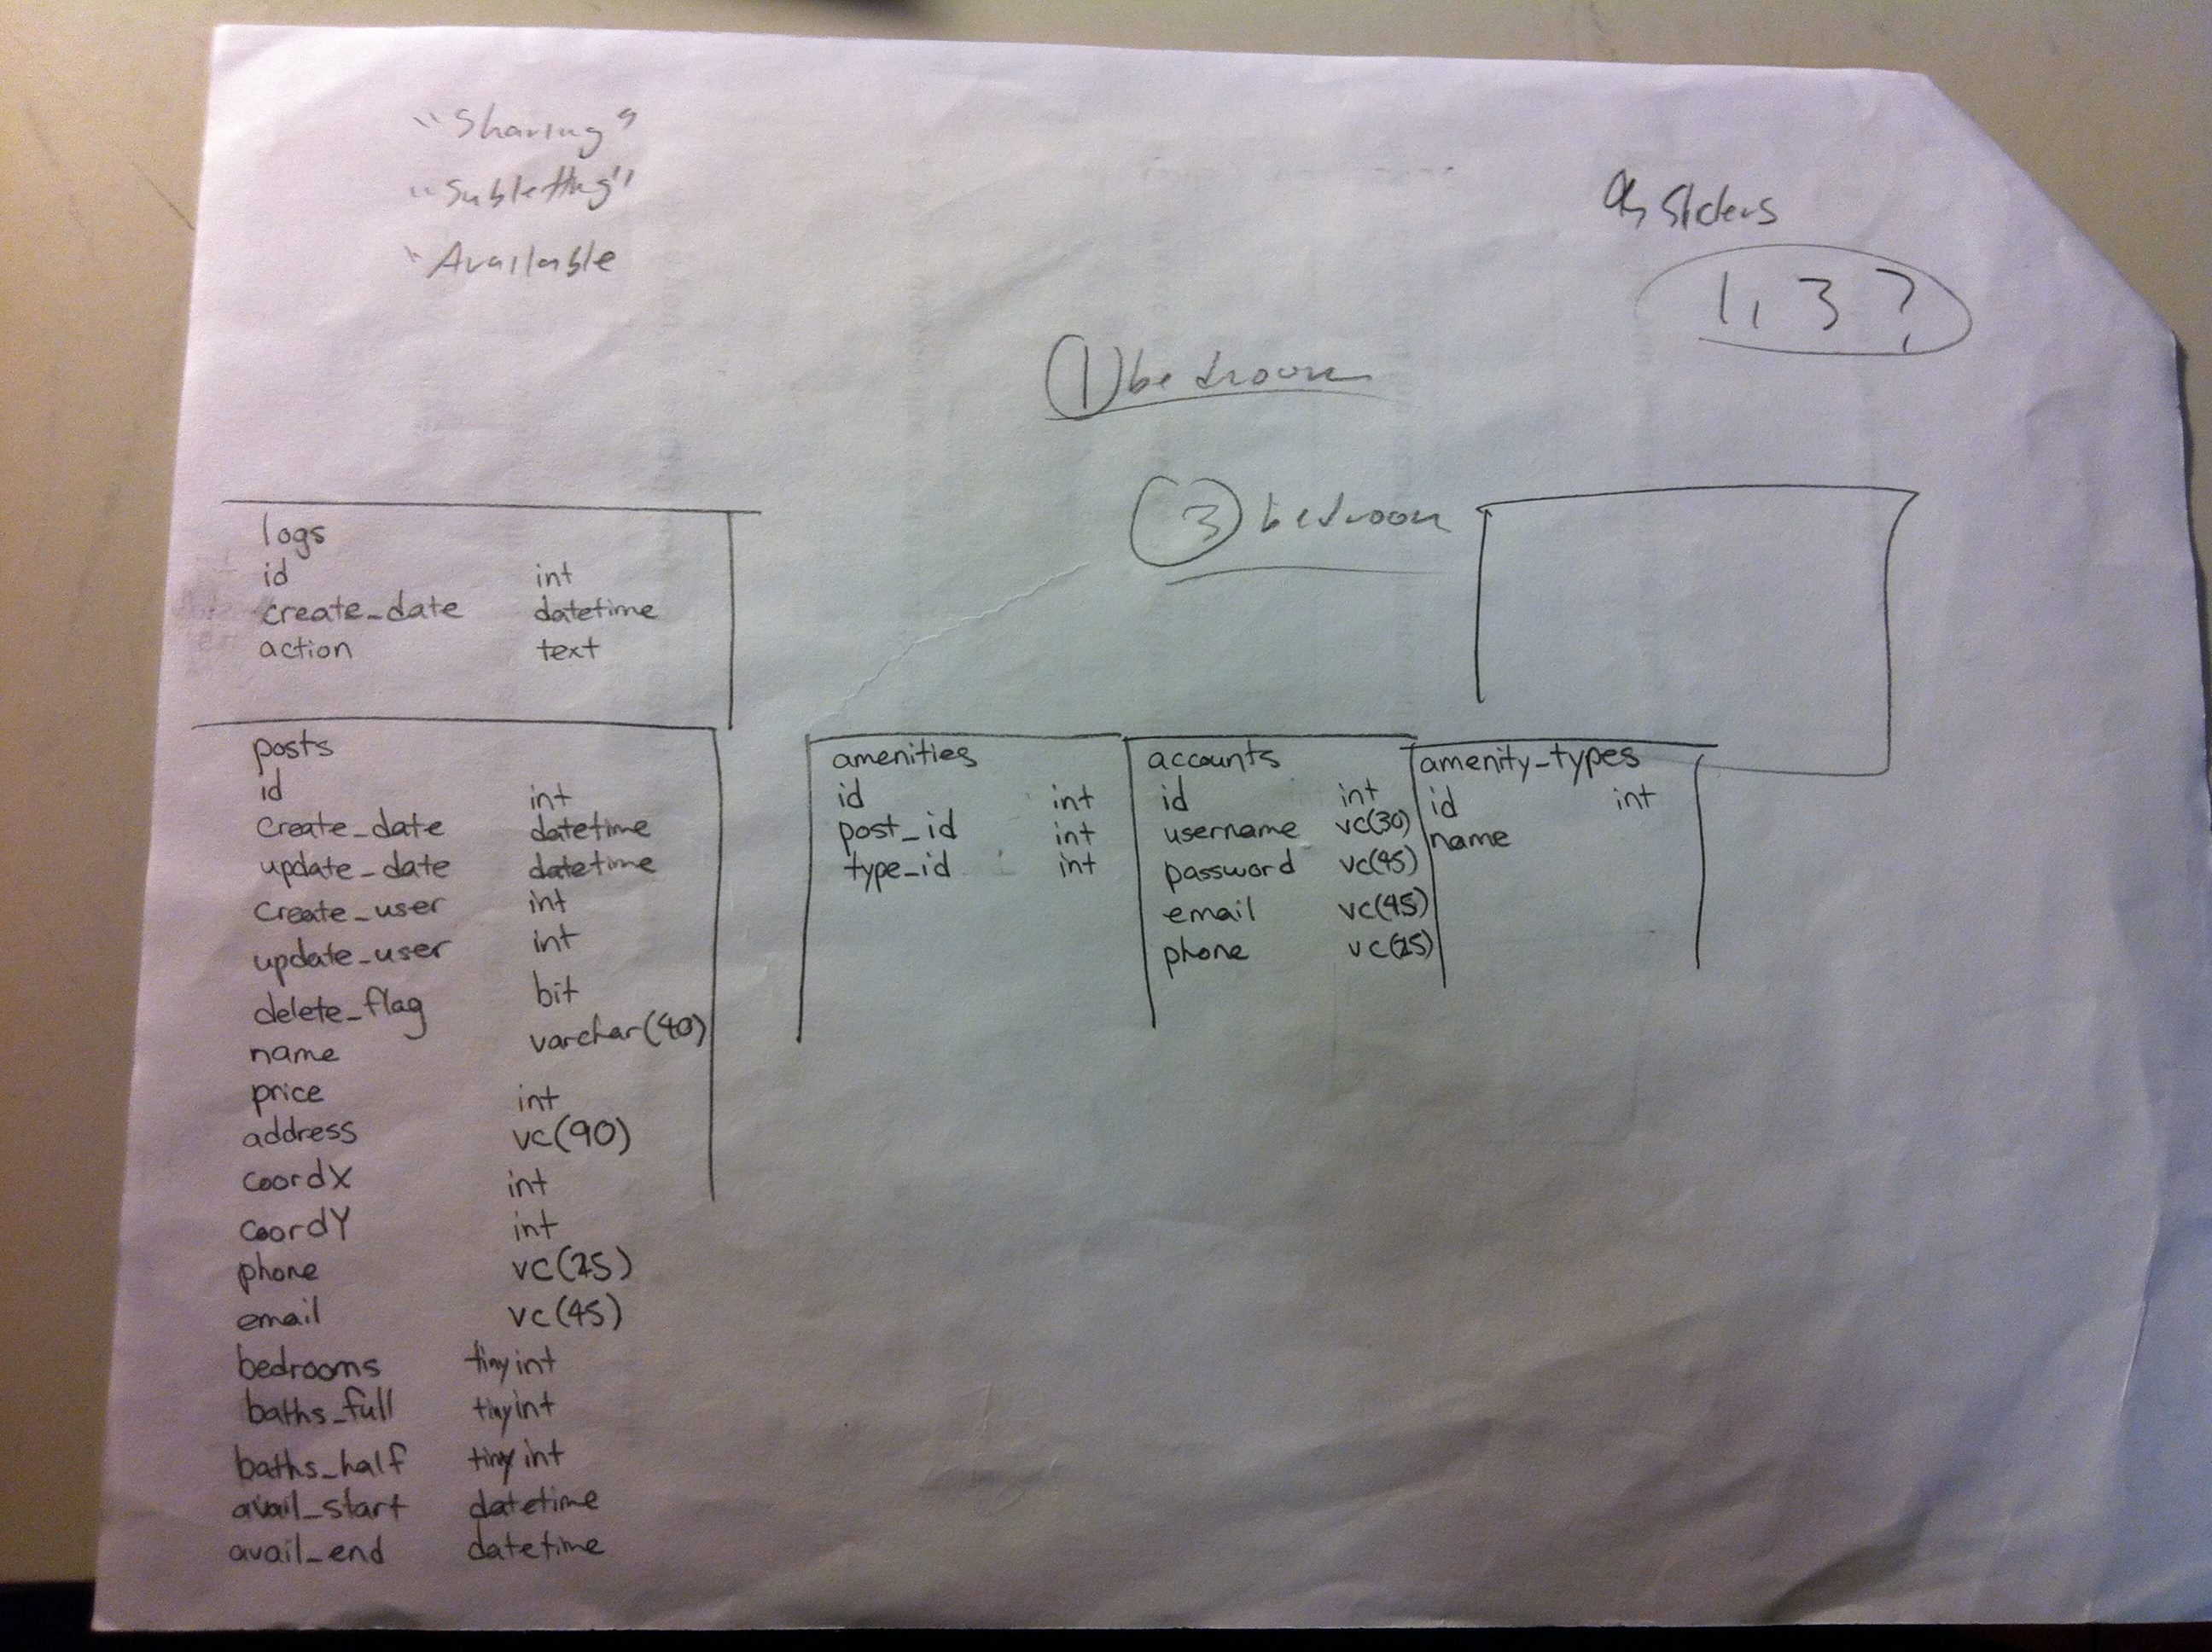 "Sharing"
"Subletting"
"Available
logs
id int
create_date datetime
action text
posts
id int
create_date datetime
update_date datetime
create_user int
update_user int
delete_flag bit
name varchar(40)
price int
address vc(90)
coordX int
coordY int
phone vc(25)
email vc(45)
bedrooms tinyint
baths_full tinyint
baths_half tinyint
avail_start datetime
avail_end datetime
amenities
id int
post_id int
type_id int
accounts
id int
username vc(30)
password vc(45)
email vc(45)
phone vc(25)
amenity_types
id int
name
1 bedroom
3 bedroom
sliders
1, 3,